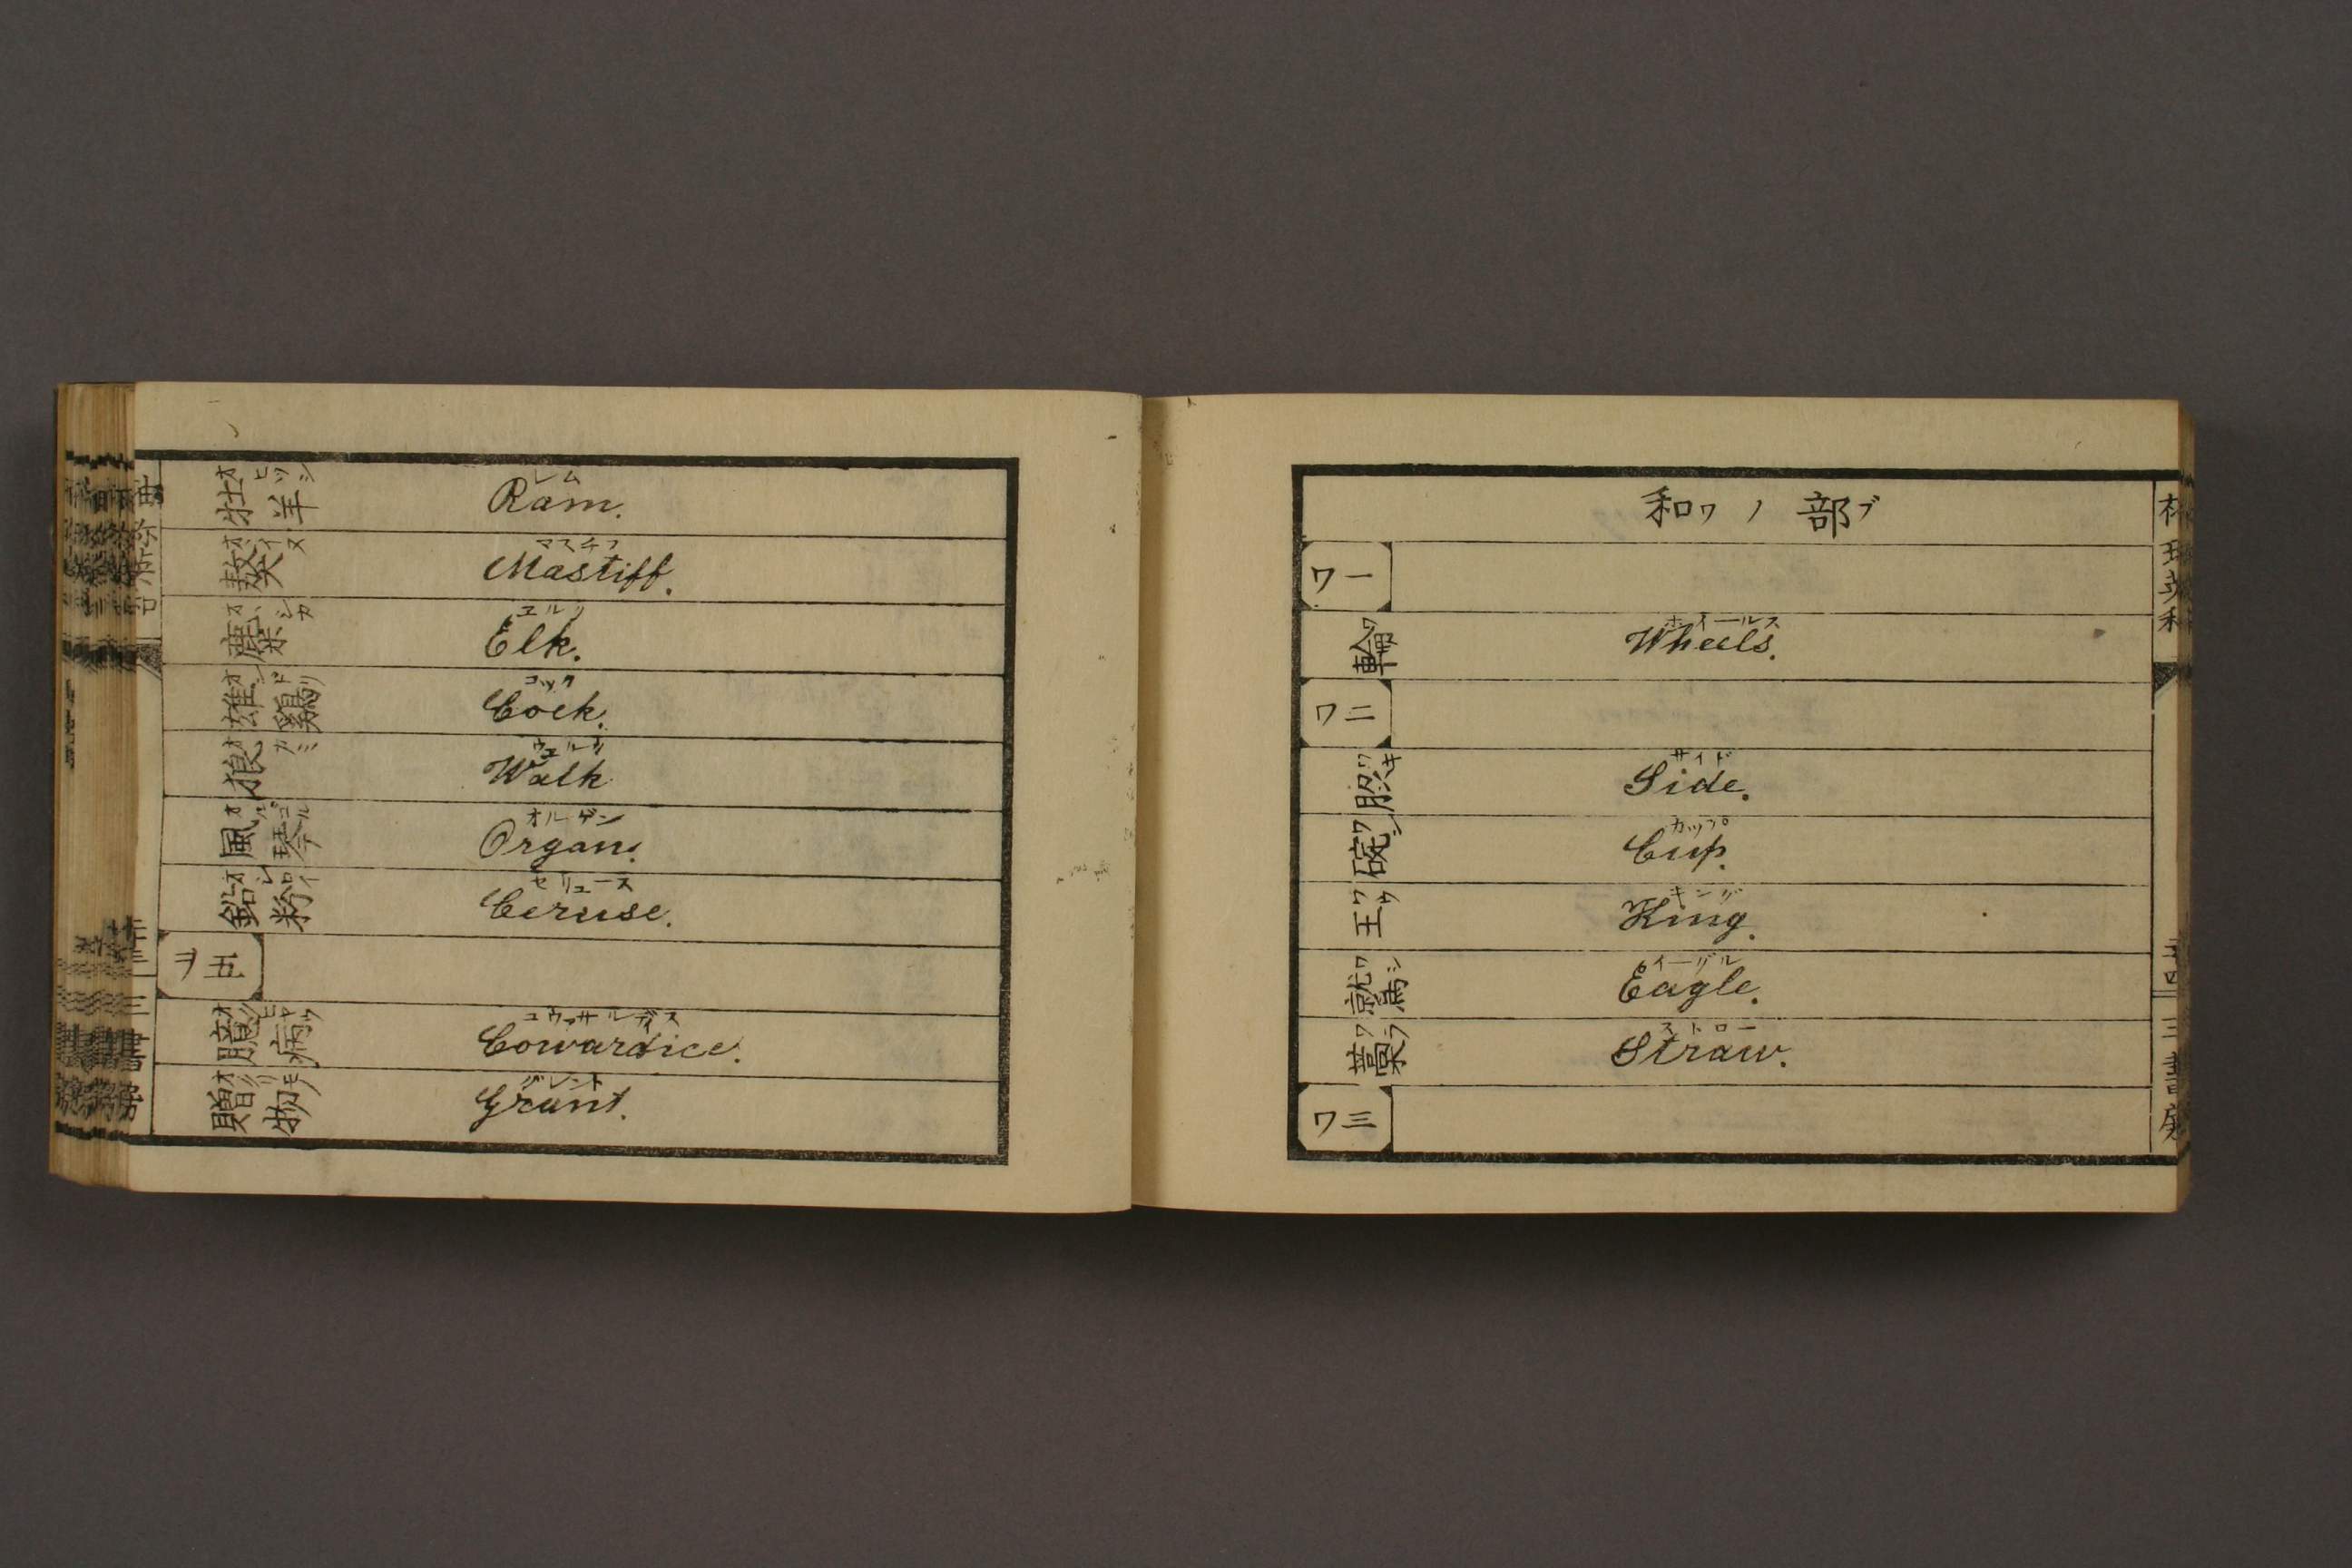 牡羊 オヒツジ
レム
Ram.
獒犬 オイヌ
マスチフ
Mastiff.
麋 オシカ
エルク
Elk.
雄鷄 オンドリ
コック
Cock.
狼 オカミ
ウエルク
Walk
風琴 オルゴル
オルゲン
Organ.
鉛粉 オシロイ
セリュース
Ceruse.
ヲ五
臆病 オクビヤウ
Cowardice.
贈物 オクリモノ
グレント
Grant.
和ワノ部ブ
ワ一
輪 ワ
ホイールス
Wheels.
ワ二
腋 ワキ
サイド
Side.
碗 ワン
カップ
Cup.
王 ワウ
キング
King.
鷲 ワシ
イーグル
Eagle.
藁 ワラ
ストロー
Straw.
ワ三